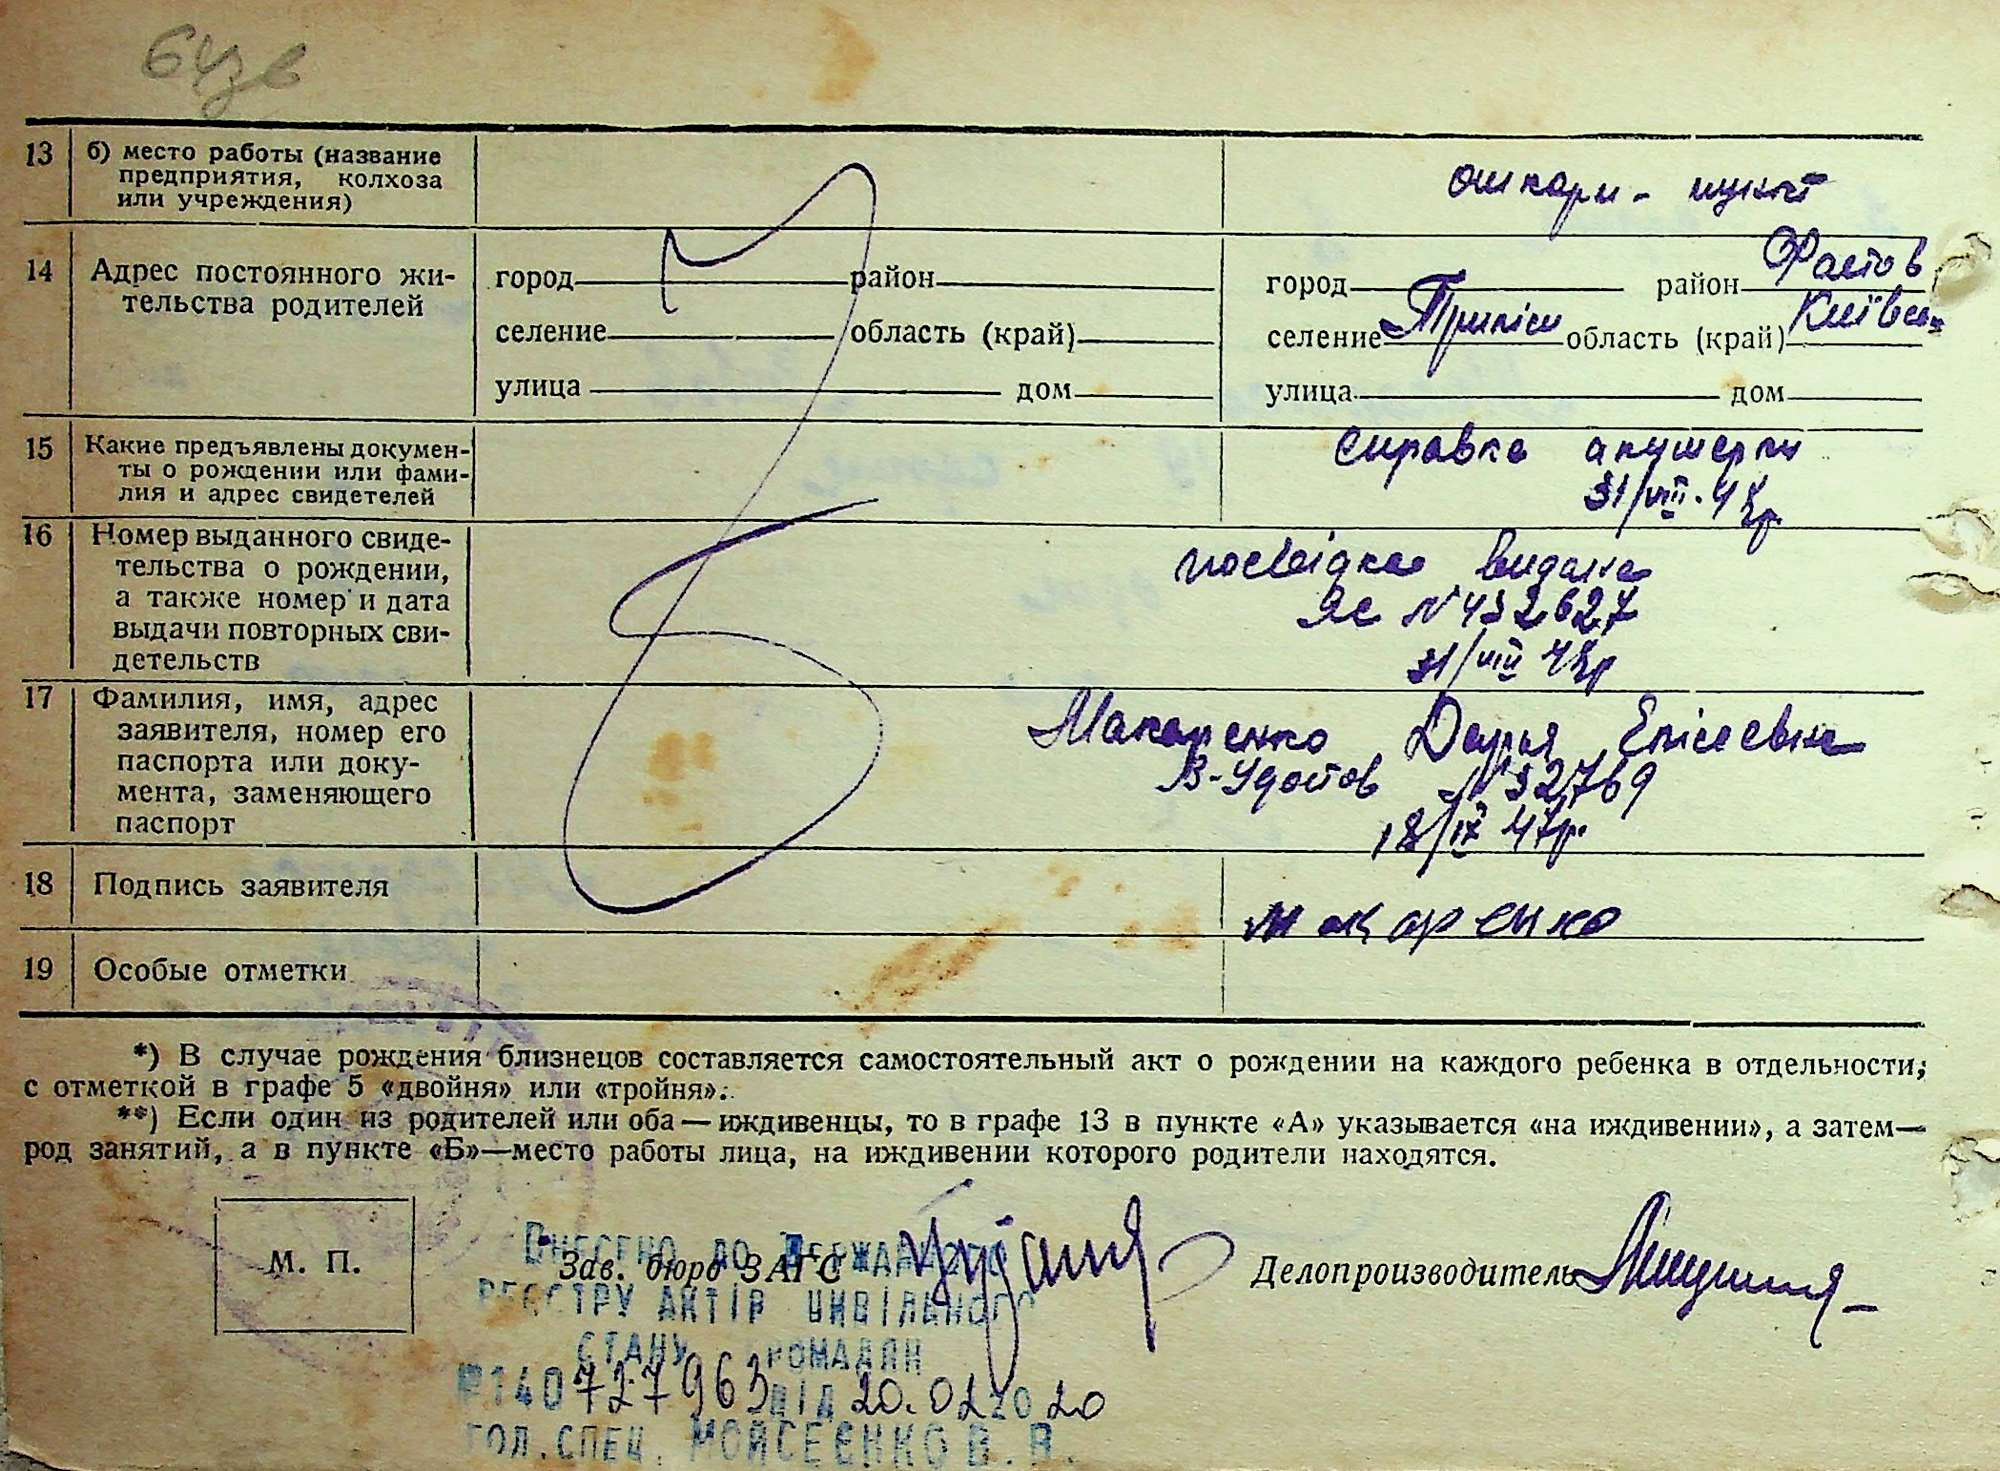 64зв
13 б) место работы (название
предприятия, колхоза
или учреждения)
пункт
14 Адрес постоянного жи-
тельства родителей
город район город район Фастов
селение область (край) селение область (край) Київськ
улица дом улица дом
15 Какие предъявлены докумен-
ты о рождении или фами-
лия и адрес свидетелей
справка акушерки
31/VIII-48р
16 Номер выданного свиде-
тельства о рождении,
а также номер и дата
выдачи повторных сви-
детельств
посвідка видана
ЯС № 432627
31/VIII 48р
17 Фамилия, имя, адрес
заявителя, номер его
паспорта или доку-
мента, заменяющего
паспорт
Макаренко Дарья Елісеевна
№ 32769
18/IX 47р.
18 Подпись заявителя
Макаренко
19 Особые отметки
*) В случае рождения близнецов составляется самостоятельный акт о рождении на каждого ребенка в отдельности,
с отметкой в графе 5 «двойня» или «тройня».
**) Если один из родителей или оба — иждивенцы, то в графе 13 в пункте «А» указывается «на иждивении», а затем—
род занятий, а в пункте «Б»—место работы лица, на иждивении которого родители находятся.
М. П.
Зав. бюро ЗАГС Делопроизводитель
Внесено до Державного
реєстру актів цивільного
стану громадян
№ 140727963 від 20.02.2020
гол. спец. Мойсеєнко В. В.